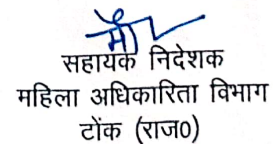 सहायक निदेशक
महिला अधिकारिता विभाग
टोंक (राज०)